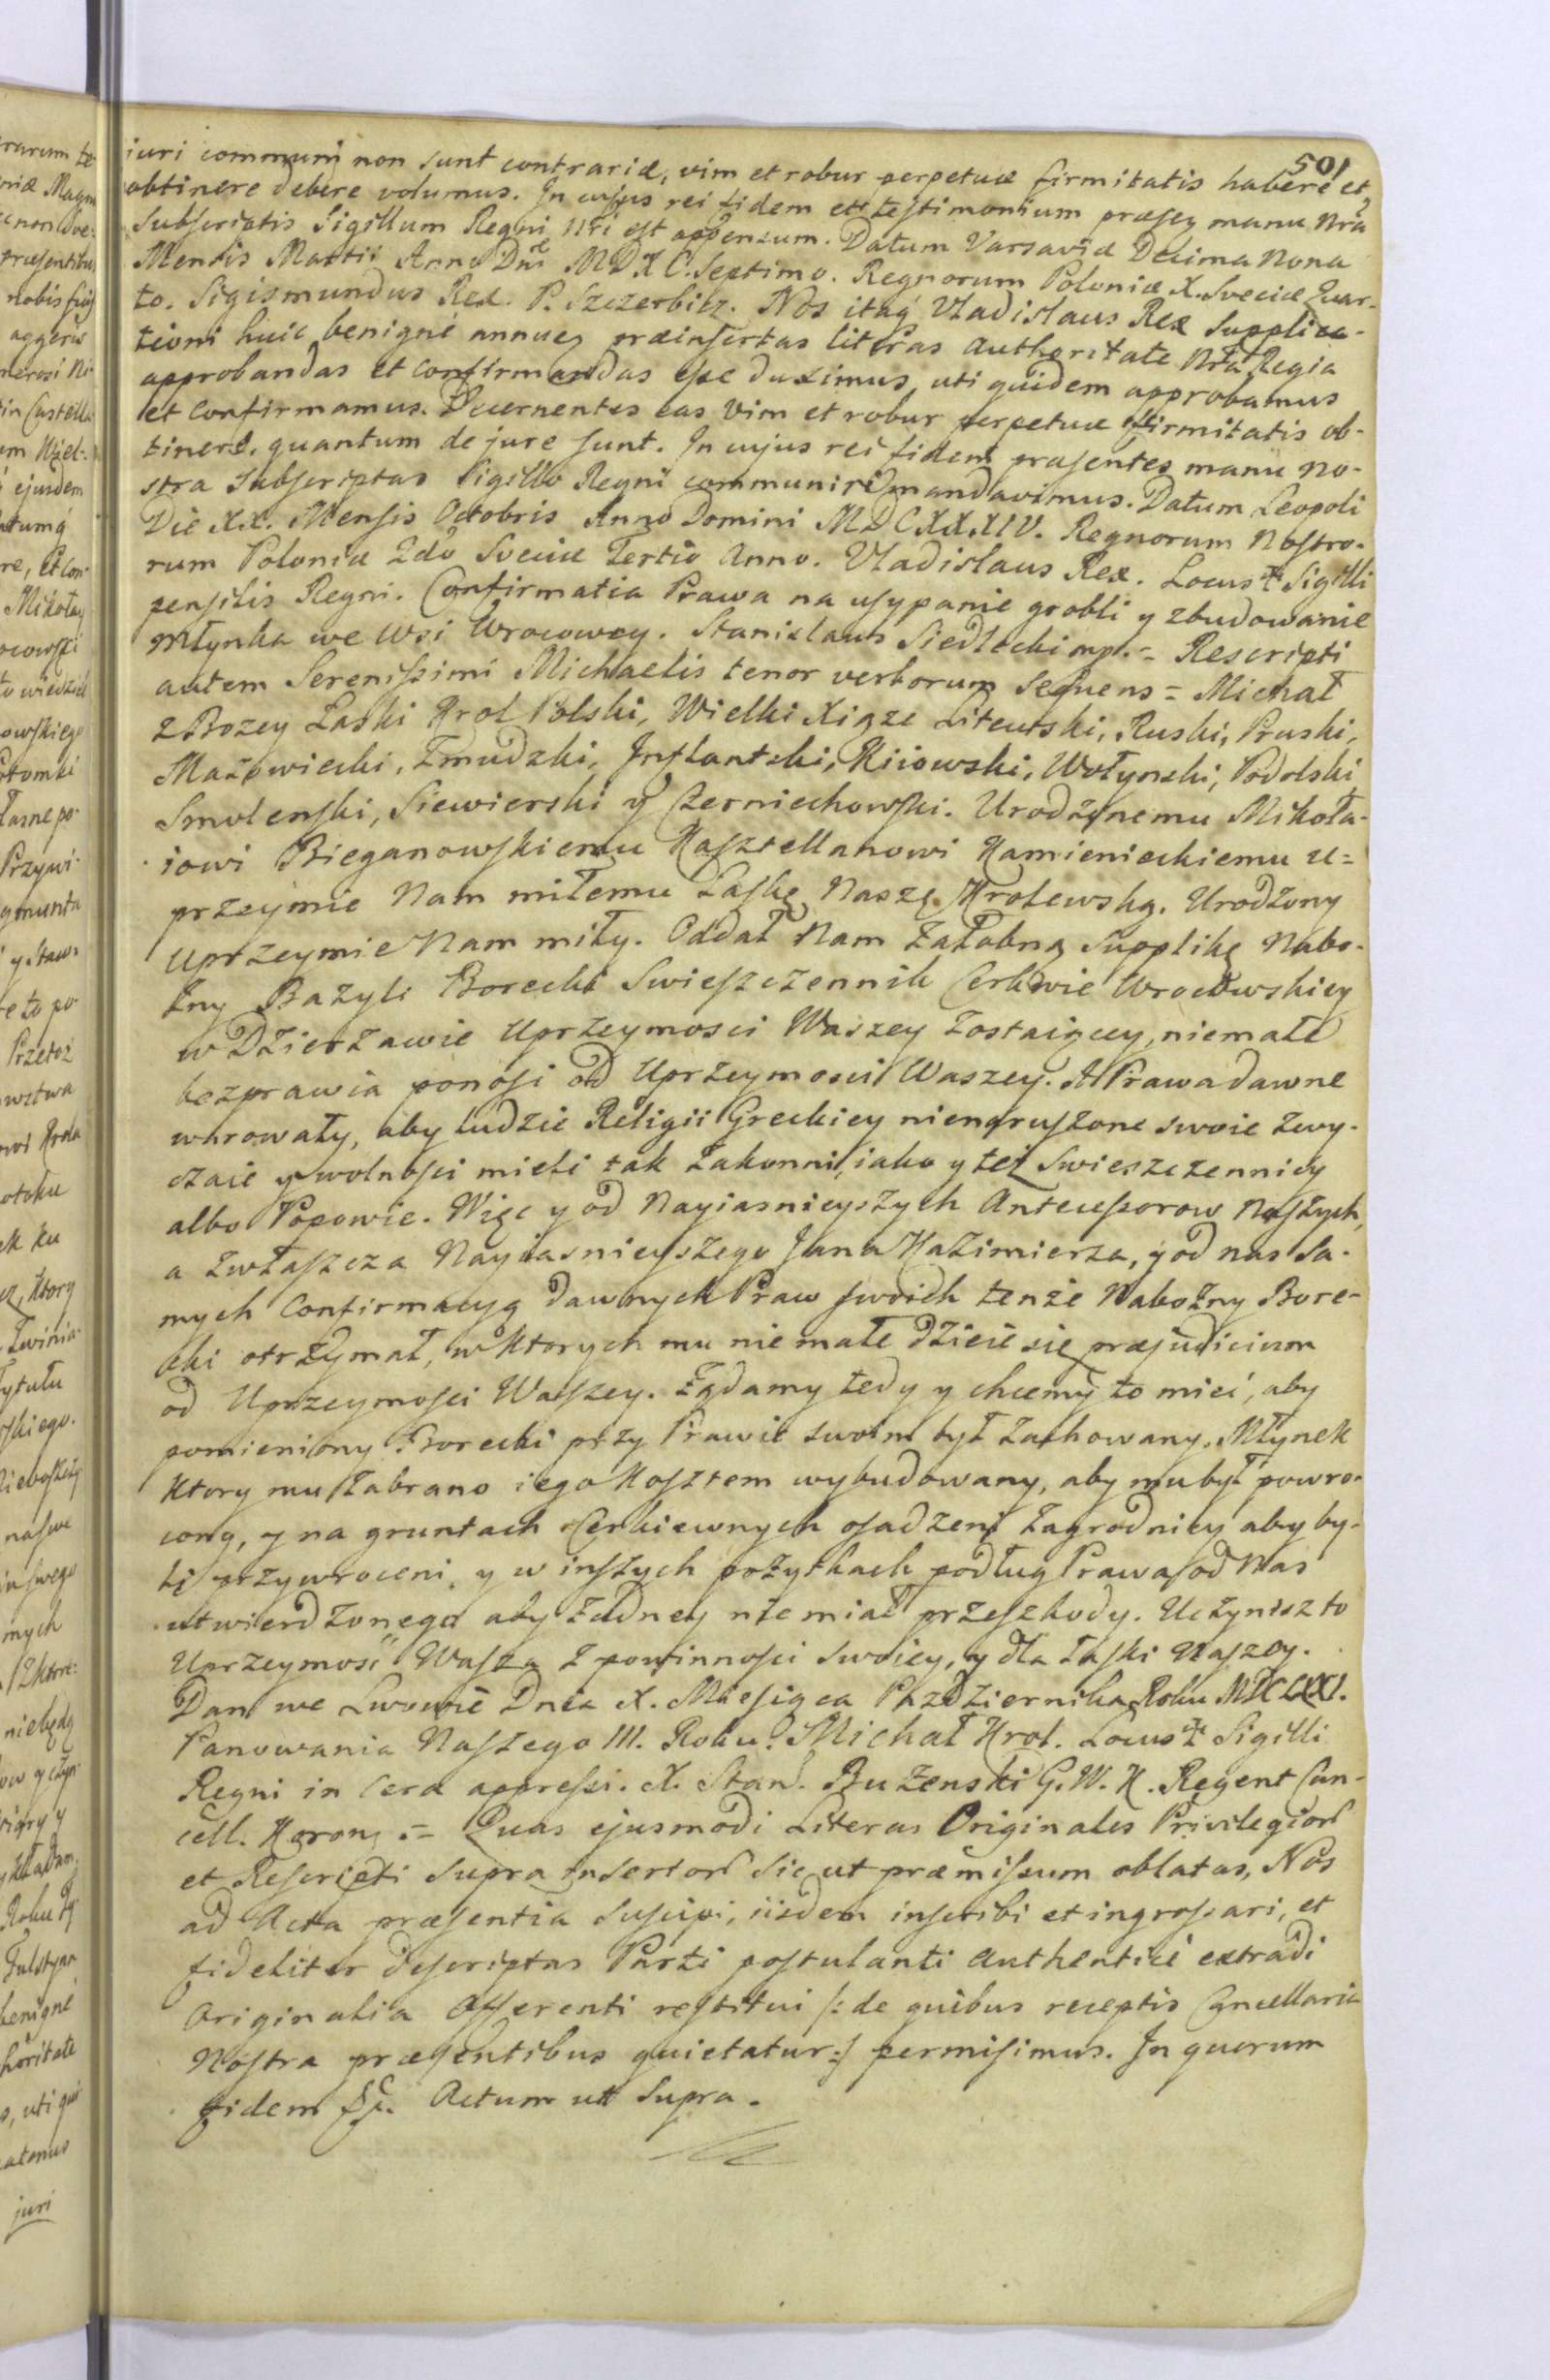 501
iuri communi non sunt contrariæ, vim et robur perpetuæ firmitatis habere et
obtinere debere volumus. In cujus rei fidem et testimonium præsen manu Nrā
Subscriptis Sigillum Regni Nri est appensum. Datum Varsaviæ Decima Nona
Mensis Martii Anno Dni MDXC. Septimo. Regnorum Poloniæ X. Sveciæ Quar-
to. Sigismundus Rex. P. Szczerbicz. Nos itaq Vladislaus Rex Supplica-
tioni huic benigné annuen præinsertas literas Authoritate Nrā Regia
approbandas et confirmandas esse duximus, uti quidem approbamus
et Confirmamus. Decernentes eas Vim et robur perpetuæ firmitatis ob-
tinere, quantum de jure sunt. In cujus rei fidem præsentes manu No-
stra Subscriptas Sigillo Regni communiri mandavimus. Datum Leopoli
Die XX. Mensis Octobris Anno Domini MDCXXXIV. Regnorum Nostro-
rum Poloniæ 2do Sveciæ Tertio Anno. Vladislaus Rex. Locus Sigilli
pensilis Regni. Confirmatia Prawa na usypanie grobli y zbudowanie
Młynka we Wsi Wrocowey. Stanislaus Siedlecki mp. = Rescripti
autem Serenissimi Michaelis tenor verborum sequens = Michał
z Bozey Łaski Krol Polski, Wielki Xiąze Litewski, Ruski, Pruski,
Mazowiecki, Żmudzki, Inflantski, Kiiowski, Wołynski, Podolski
Smolenski, Siewierski y Czerniechowski. Urodzonemu Mikoła-
iowi Bieganowskiemu Kasztellanowi Kamienieckiemu u=
przeymie Nam miłemu Łaskę Naszę Krolewską. Urodzony
uprzeymie Nam miły. Oddał Nam żałobną Supplikę Nabo-
żny Bazyli Borecki Swieszczennik Cerkwie Wrocowskiey
w Dzierżawie Uprzeymosci Waszey zostaiącey, niemałe
bezprawia ponosi od Uprzeymosci Waszey. A Prawa dawne
warowały, aby ludzie Religii Greckiey nienaruszone swoie zwy-
czaie y wolnosci mieli tak zakonni, iako y też Swieszczennicy
albo Popowie. Więc y od Nayiasnieyszych Antecessorow Naszych,
a zwłaszcza Nayiasnieyszego Jana Kazimierza, y od nas sa-
mych Confirmacyą dawnych Praw swoich tenże Nabożny Bore-
cki otrzymał, w ktorych mu nie małe dzieie się præjudicium
od Uprzeymosci Waszey. Żądamy tedy y chcemy to mieć, aby
pomieniony Borecki przy Prawie swoim był zachowany. Młynek
ktory mu zabrano iego Kosztem wybudowany, aby mu był powro-
cony, y na gruntach Cerkiewnych osadzeni zagrodnicy aby by-
li przywroceni, y w inszych pożytkach podług Prawa od Nas
utwierdzonego aby żadney nie miał przeszkody. Uczynisz to
Uprzeymosć Wasza z powinnosci swoiey, y dla łaski Naszey.
Dan we Lwowie Dnia X. Miesiąca Pazdziernika Roku MDCLXXI.
Panowania Naszego III. Roku. Michał Krol. Locus Sigilli
Regni in Cera appressi. X. Stan. Buzenski G. W. K. Regent Can-
cell. Korony .= Quas ejusmodi Literas Originales Privilegior
et Rescripti supra insertor sic ut præmissum oblatas, Nos
ad Acta præsentia suscipi, iisdem inscribi et ingrossari, et
fideliter descriptas Parti postulanti authenticé extradi
Originalia Offerenti restitui /: de quibus receptis Cancellaria
Nostra præsentibus quietatur :/ permisimus. In quorum
fidem Actum ut Supra.